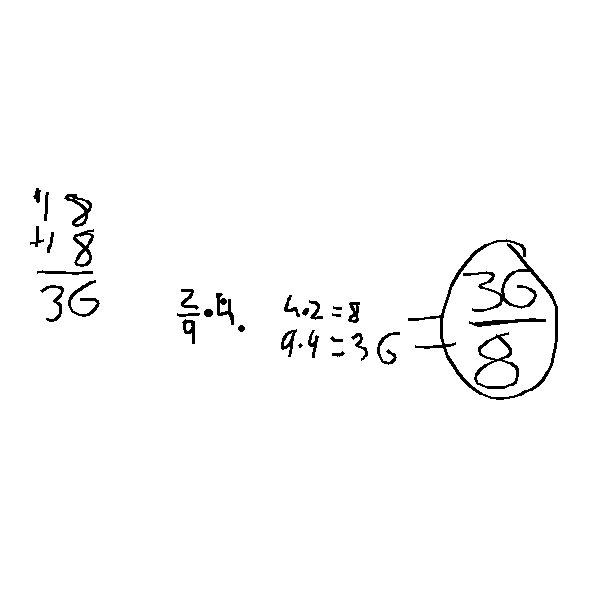 18
+18
36
2/9 · 4.
4·2=8
9·4=36
= 36/8